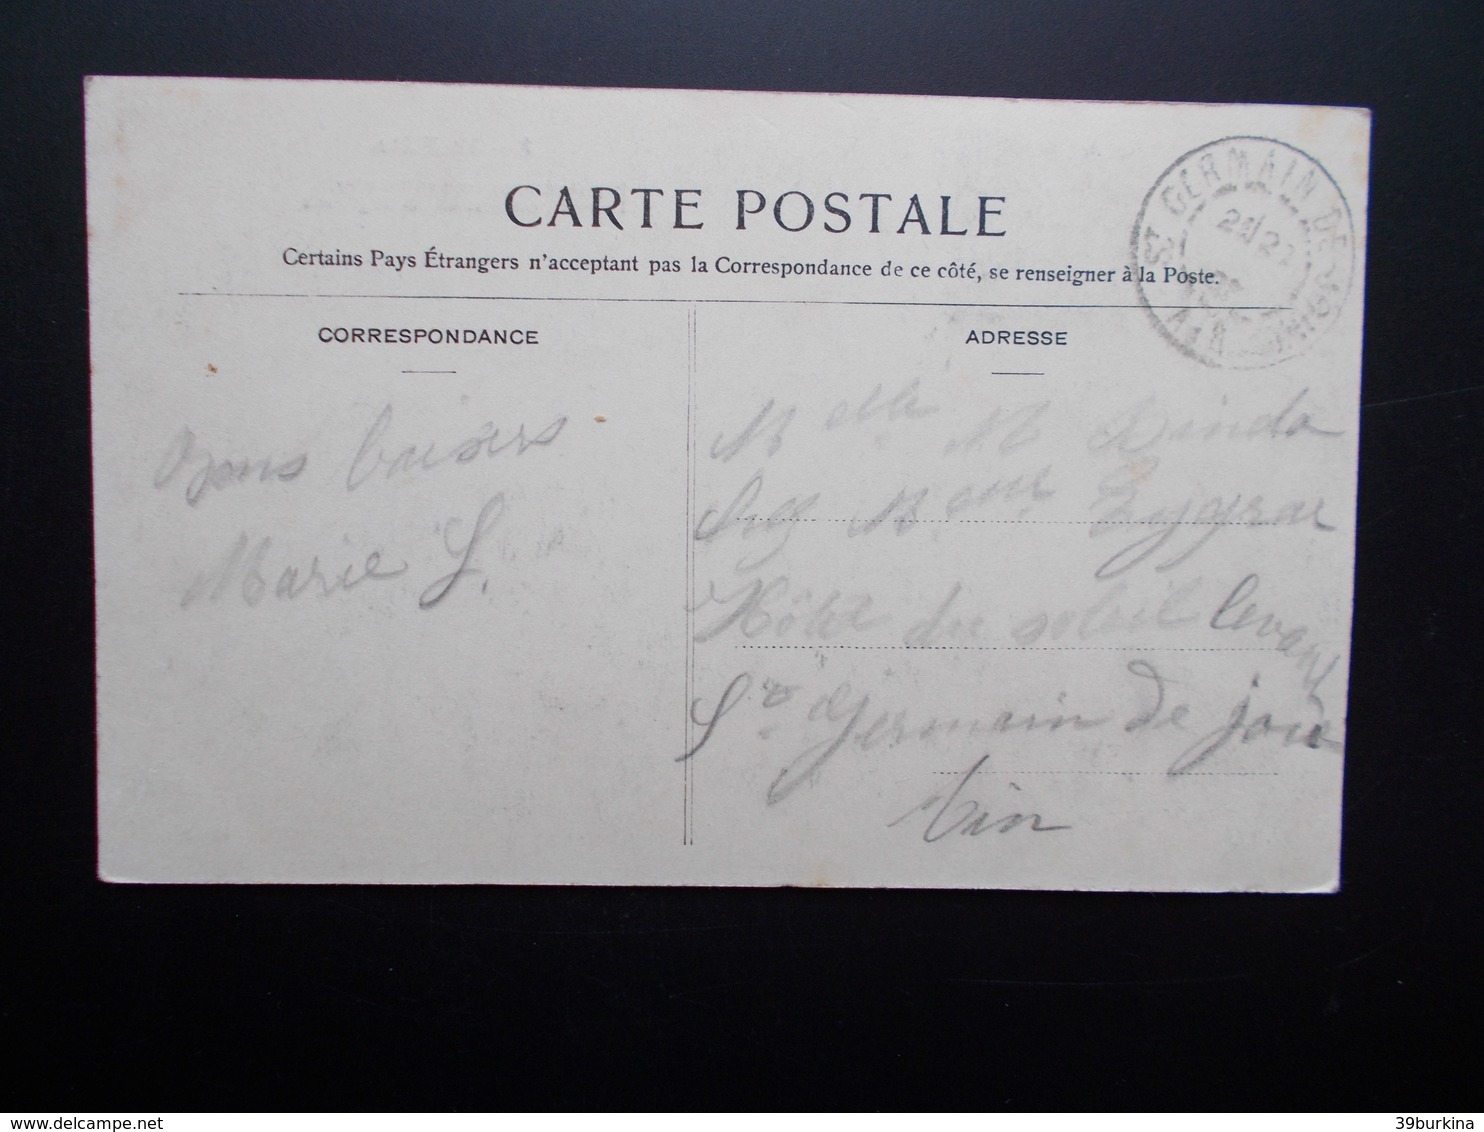 CARTE POSTALE
Certains Pays Étrangers n'acceptant pas la Correspondance de ce côté, se renseigner à la Poste.
CORRESPONDANCE
ADRESSE
ST GERMAIN DE JOUX
AIN
baisers
Marie L.
Melle M
Mme
Hôtel du soleil levant
St Germain de joux
Ain
delcampe.net
39burkina